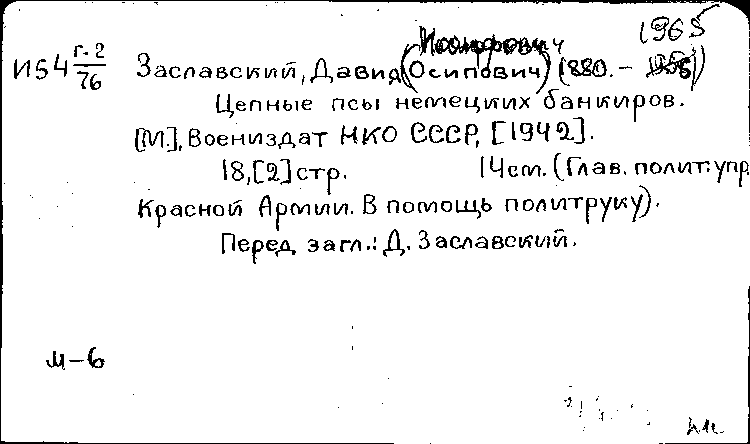 1965
И54 г.2/76 Заславский, Давид (Осипович) (1880. –
Цепные псы немецких банкиров.
[М.], Воениздат НКО СССР, [1942].
18,[2] стр. 14см. (Глав. полит. упр.
Красной Армии. В помощь политруку).
Перед загл.: Д. Заславский.
М–6